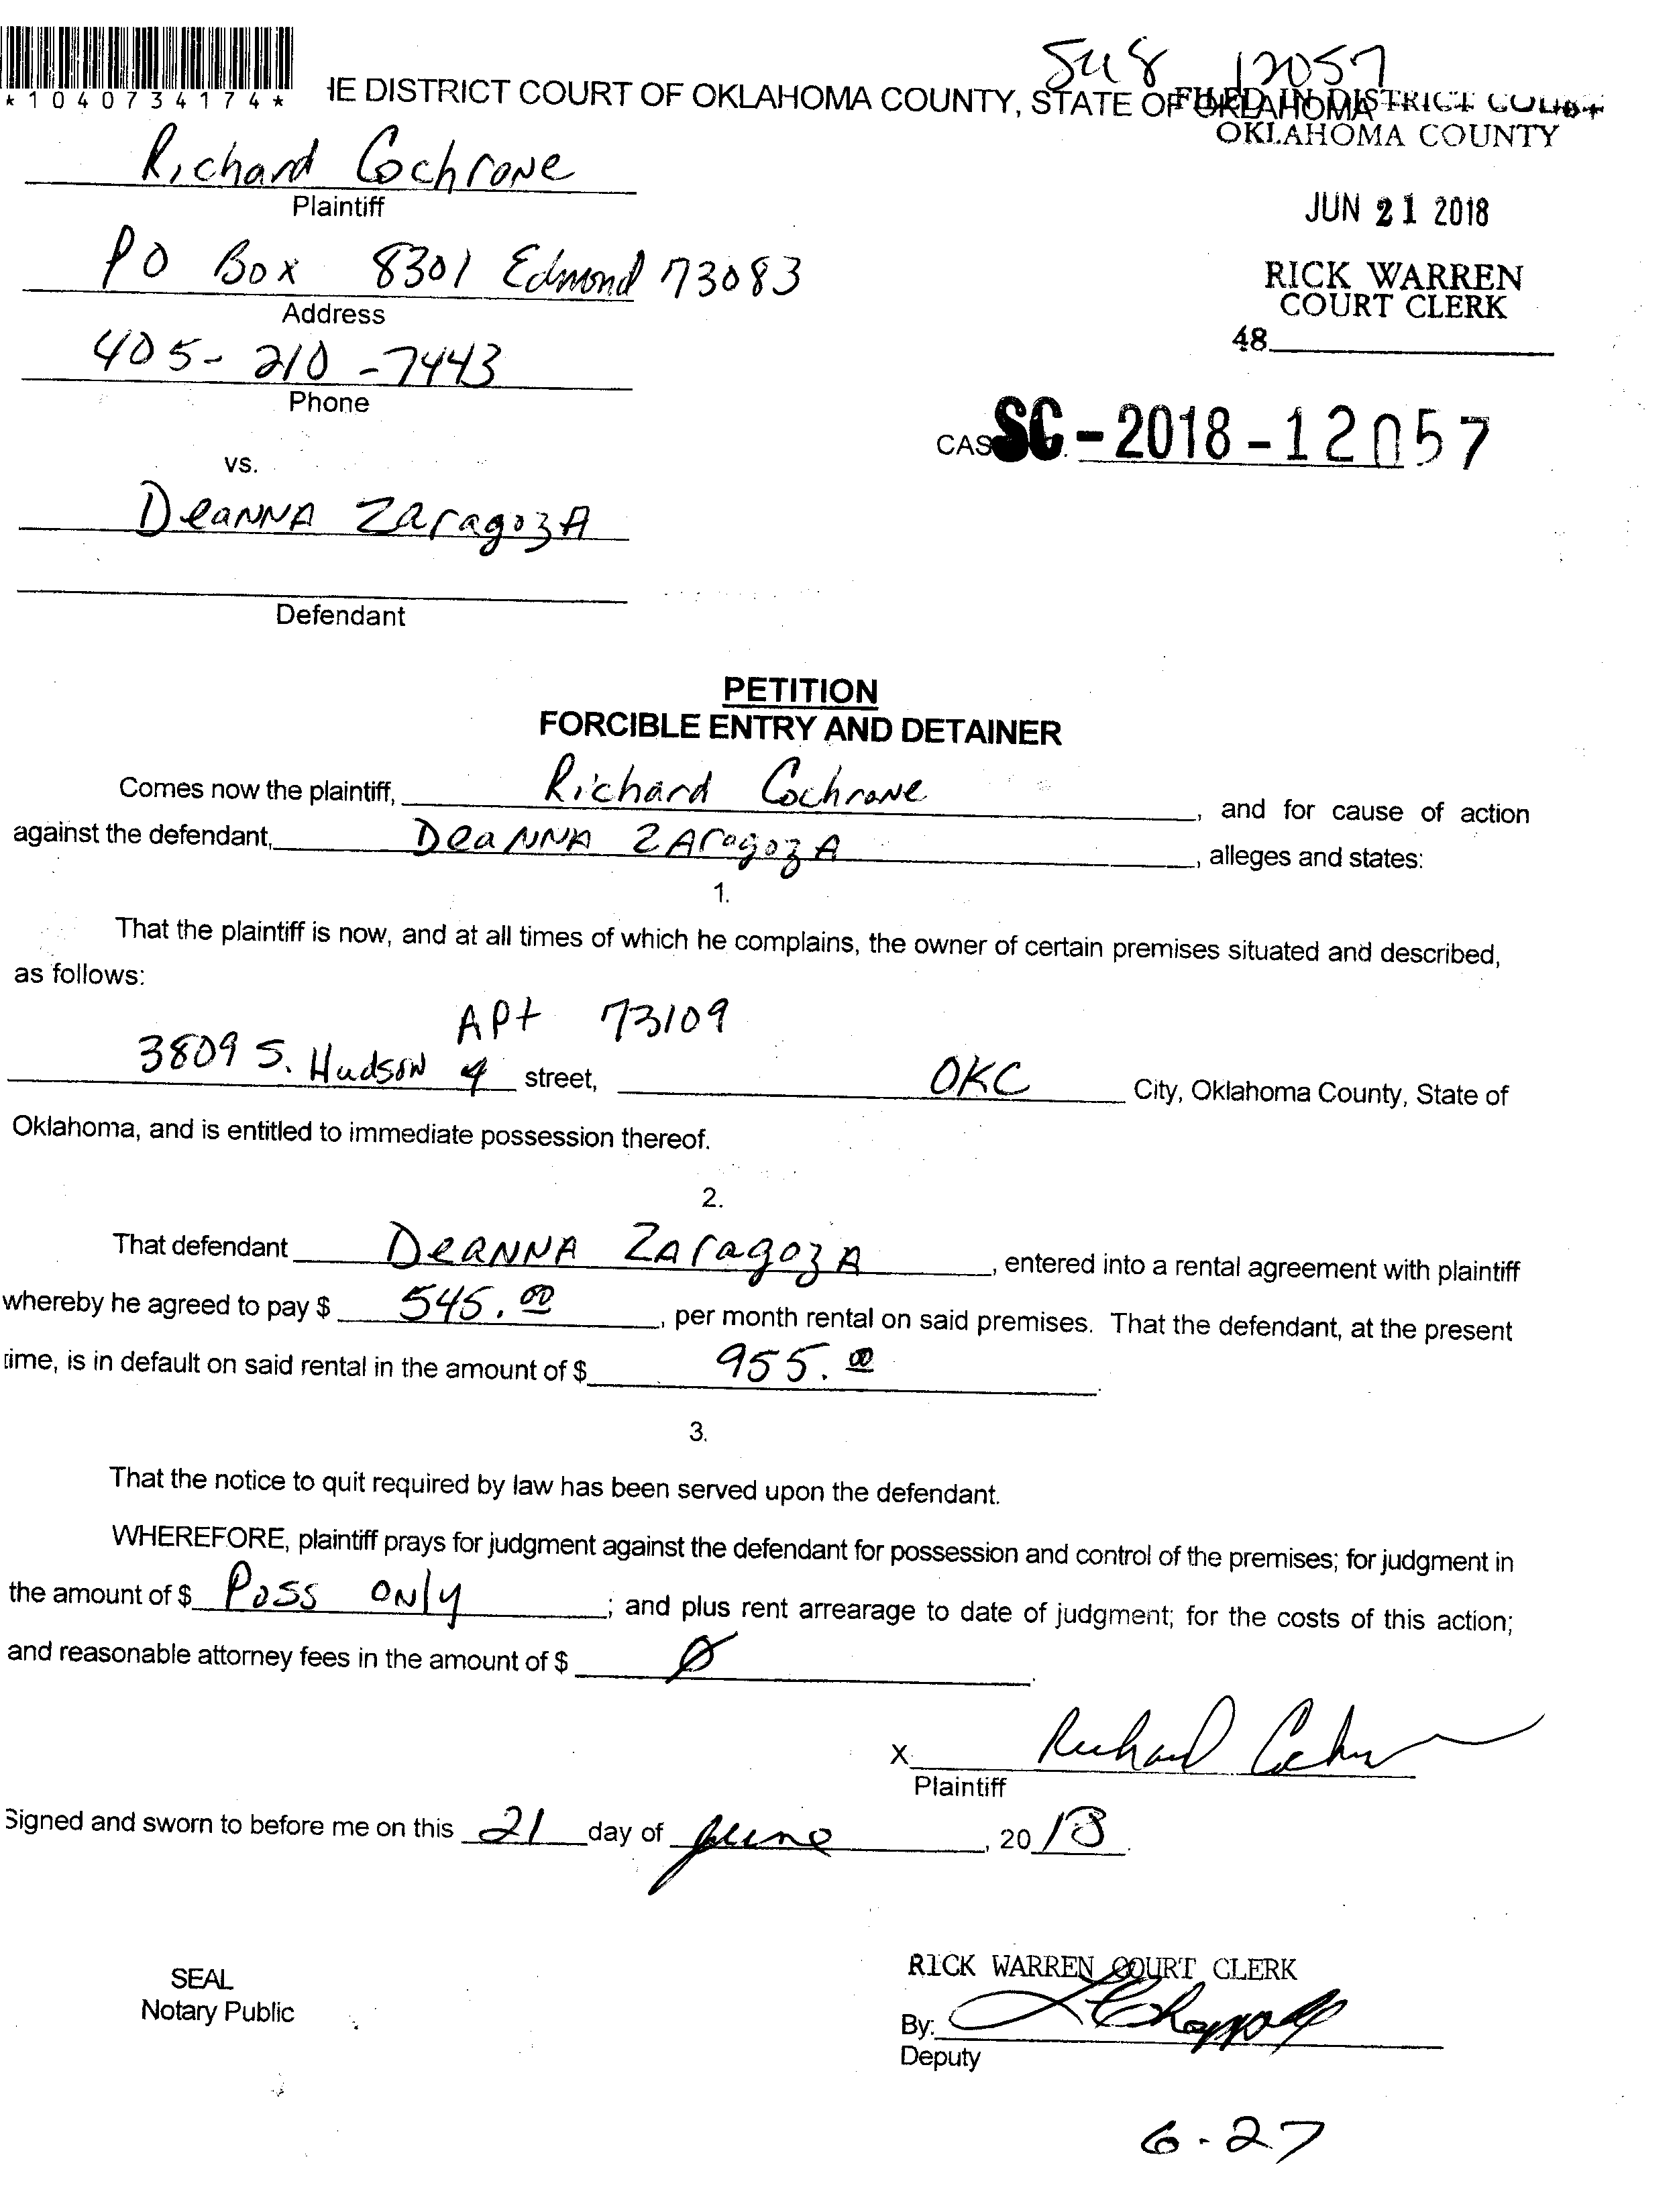 548 12057
*1040734174* HE DISTRICT COURT OF OKLAHOMA COUNTY, STATE OF OKLAHOMA
FILED IN DISTRICT COURT
OKLAHOMA COUNTY
Richard Cochrane
Plaintiff
JUN 21 2018
PO Box 8301 Edmond 73083
Address
RICK WARREN
COURT CLERK
48
405-210-7443
Phone
CAS SC-2018-12057
vs.
Deanna Zaragoza
Defendant
PETITION
FORCIBLE ENTRY AND DETAINER
Comes now the plaintiff, Richard Cochrane, and for cause of action
against the defendant, Deanna Zaragoza, alleges and states:
1.
That the plaintiff is now, and at all times of which he complains, the owner of certain premises situated and described,
as follows:
Apt 73109
3809 S. Hudson 4 street, OKC City, Oklahoma County, State of
Oklahoma, and is entitled to immediate possession thereof.
2.
That defendant Deanna Zaragoza, entered into a rental agreement with plaintiff
whereby he agreed to pay $ 545.00, per month rental on said premises. That the defendant, at the present
time, is in default on said rental in the amount of $ 955.00.
3.
That the notice to quit required by law has been served upon the defendant.
WHEREFORE, plaintiff prays for judgment against the defendant for possession and control of the premises; for judgment in
the amount of $ Poss only; and plus rent arrearage to date of judgment; for the costs of this action;
and reasonable attorney fees in the amount of $ Ø.
X Richard Cochrane
Plaintiff
Signed and sworn to before me on this 21 day of june, 2018.
RICK WARREN COURT CLERK
SEAL
Notary Public
By:
Deputy
6-27